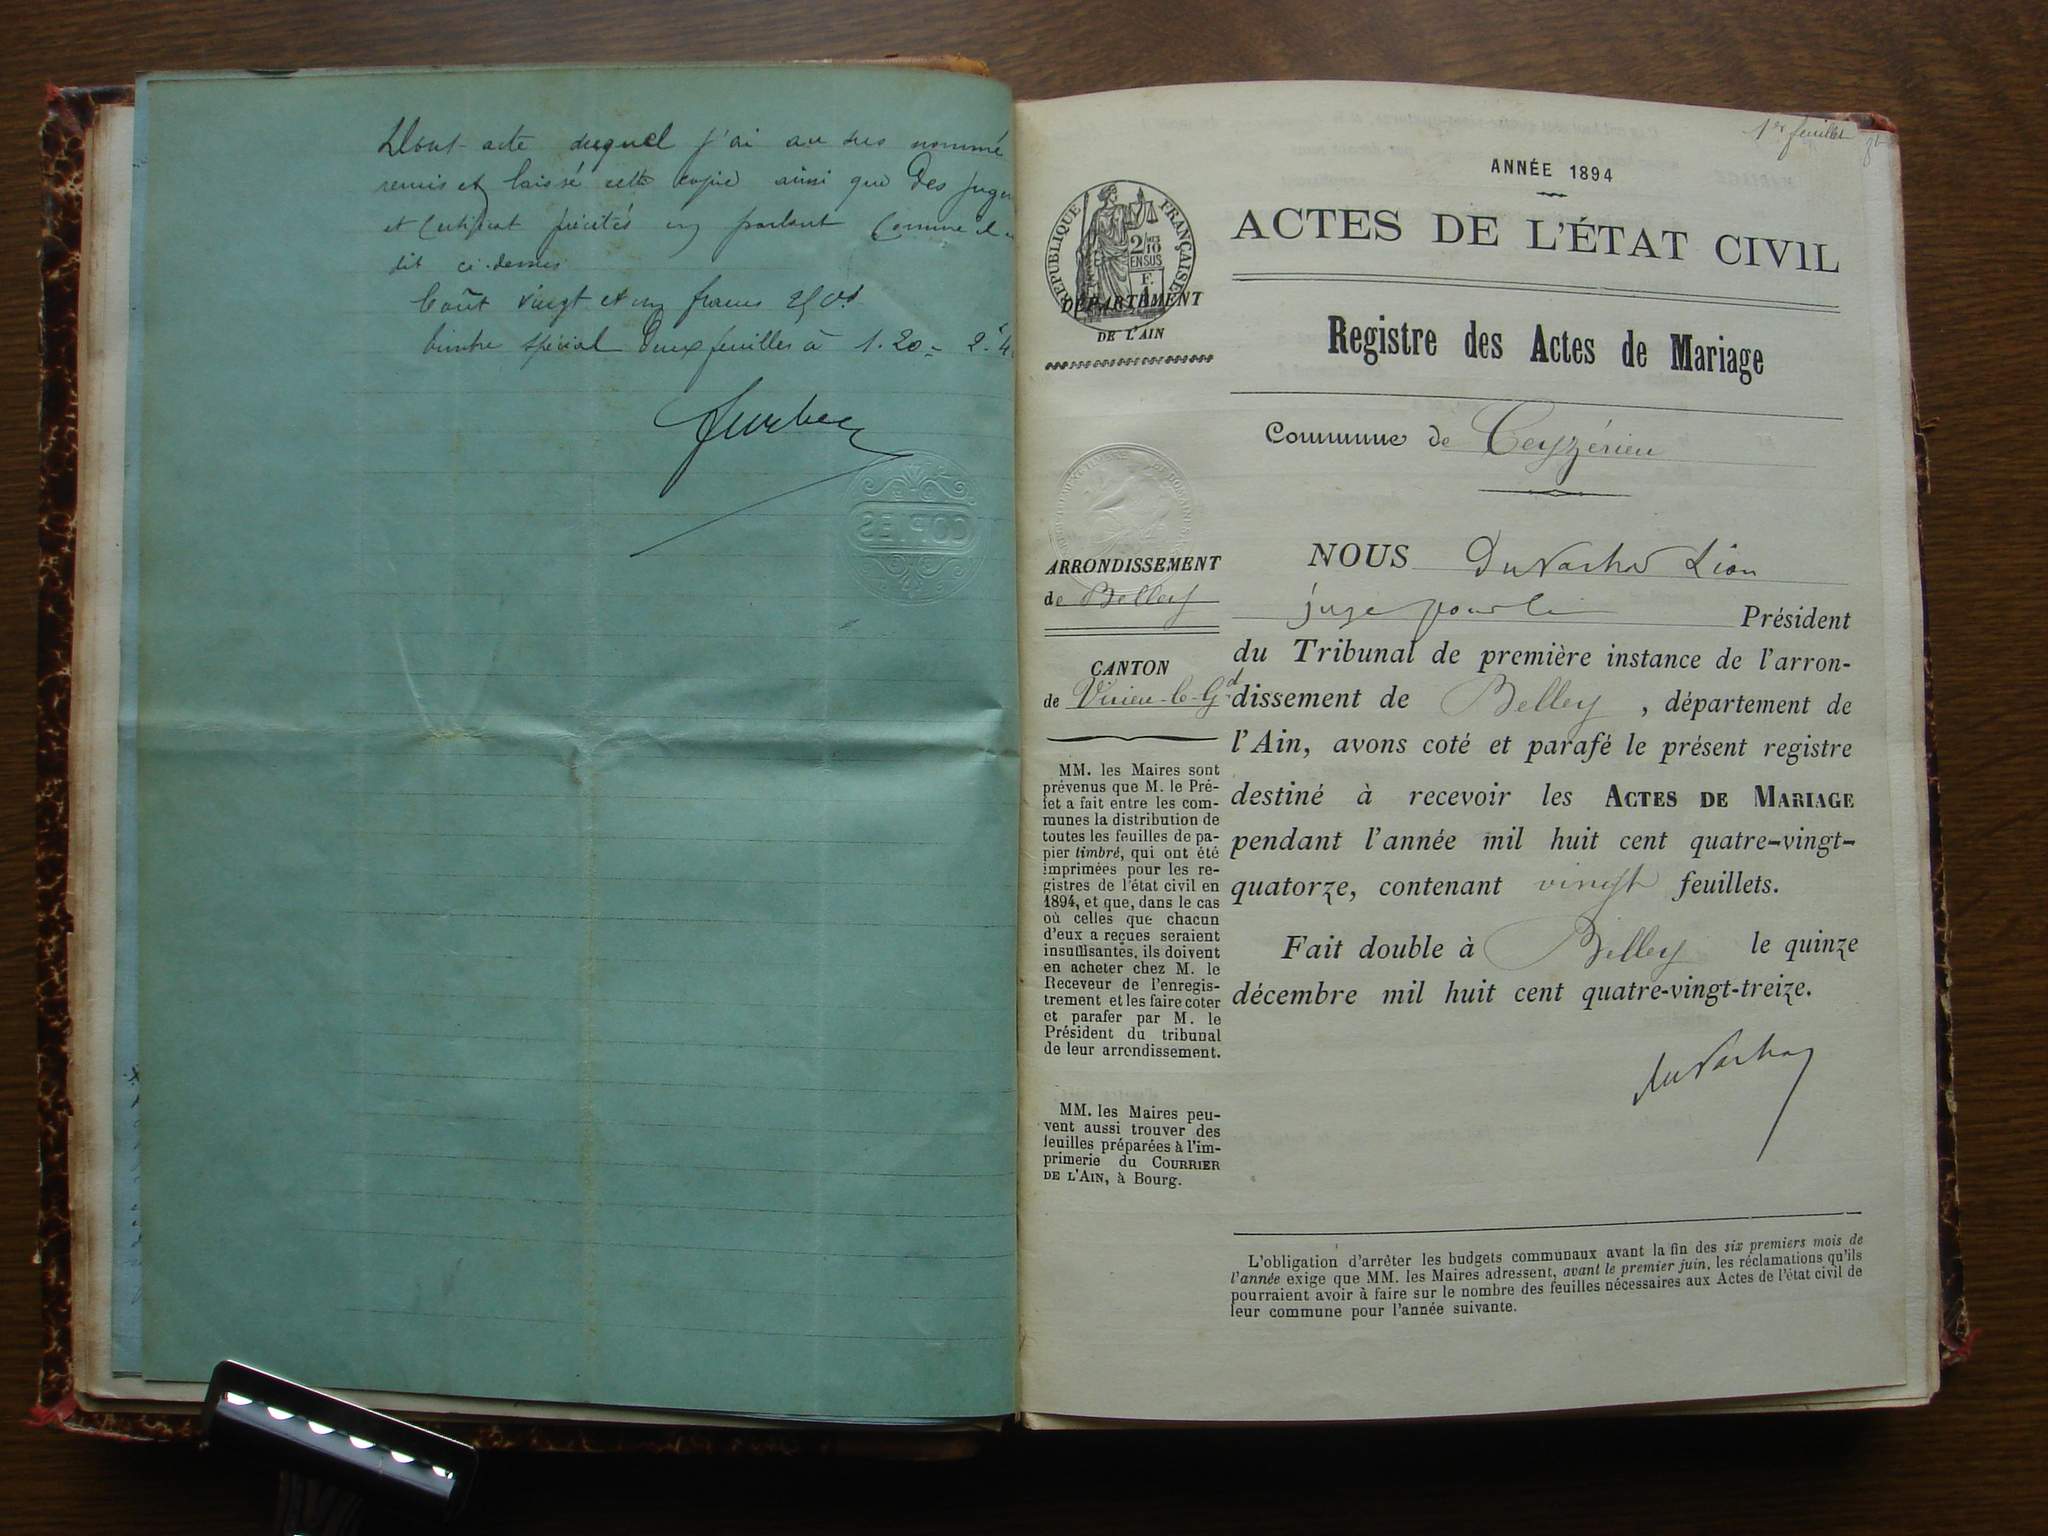 Dont acte duquel j'ai au sus nommé
remis et laissé cette copie ainsi que des
et certificat précités en parlant comme il
dit ci-dessus
Coût vingt et un francs 25 cts
timbre spécial deux feuilles à 1.20 = 2.4
COPIES
1er feuillet
ANNÉE 1894
ACTES DE L'ÉTAT CIVIL
RÉPUBLIQUE FRANÇAISE
2/10 EN SUS
DÉPARTEMENT
DE L'AIN
Registre des Actes de Mariage
Commune de Ceyzérieu
ARRONDISSEMENT
de Belley
CANTON
de Virieu-le-Gd
MM. les Maires sont
prévenus que M. le Pré-
fet a fait entre les com-
munes la distribution de
toutes les feuilles de pa-
pier timbré, qui ont été
imprimées pour les re-
gistres de l'état civil en
1894, et que, dans le cas
où celles que chacun
d'eux a reçues seraient
insuffisantes, ils doivent
en acheter chez M. le
Receveur de l'enregis-
trement et les faire coter
et parafer par M. le
Président du tribunal
de leur arrondissement.
MM. les Maires peu-
vent aussi trouver des
feuilles préparées à l'im-
primerie du COURRIER
DE L'AIN, à Bourg.
NOUS
juge pour le Président
du Tribunal de première instance de l'arron-
dissement de Belley, département de
l'Ain, avons coté et parafé le présent registre
destiné à recevoir les ACTES DE MARIAGE
pendant l'année mil huit cent quatre-vingt-
quatorze, contenant vingt feuillets.
Fait double à Belley le quinze
décembre mil huit cent quatre-vingt-treize.
L'obligation d'arrêter les budgets communaux avant la fin des six premiers mois de
l'année exige que MM. les Maires adressent, avant le premier juin, les réclamations qu'ils
pourraient avoir à faire sur le nombre des feuilles nécessaires aux Actes de l'état civil de
leur commune pour l'année suivante.